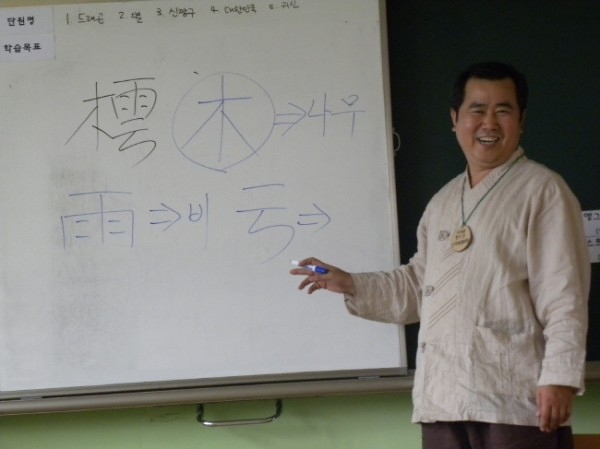 단원명 1. 드래곤 2. 3. 신짱구 4. 대한민국 5. 귀신
학습목표
樗 木 ⇒ 나무
雨 ⇒ 비 亏 ⇒